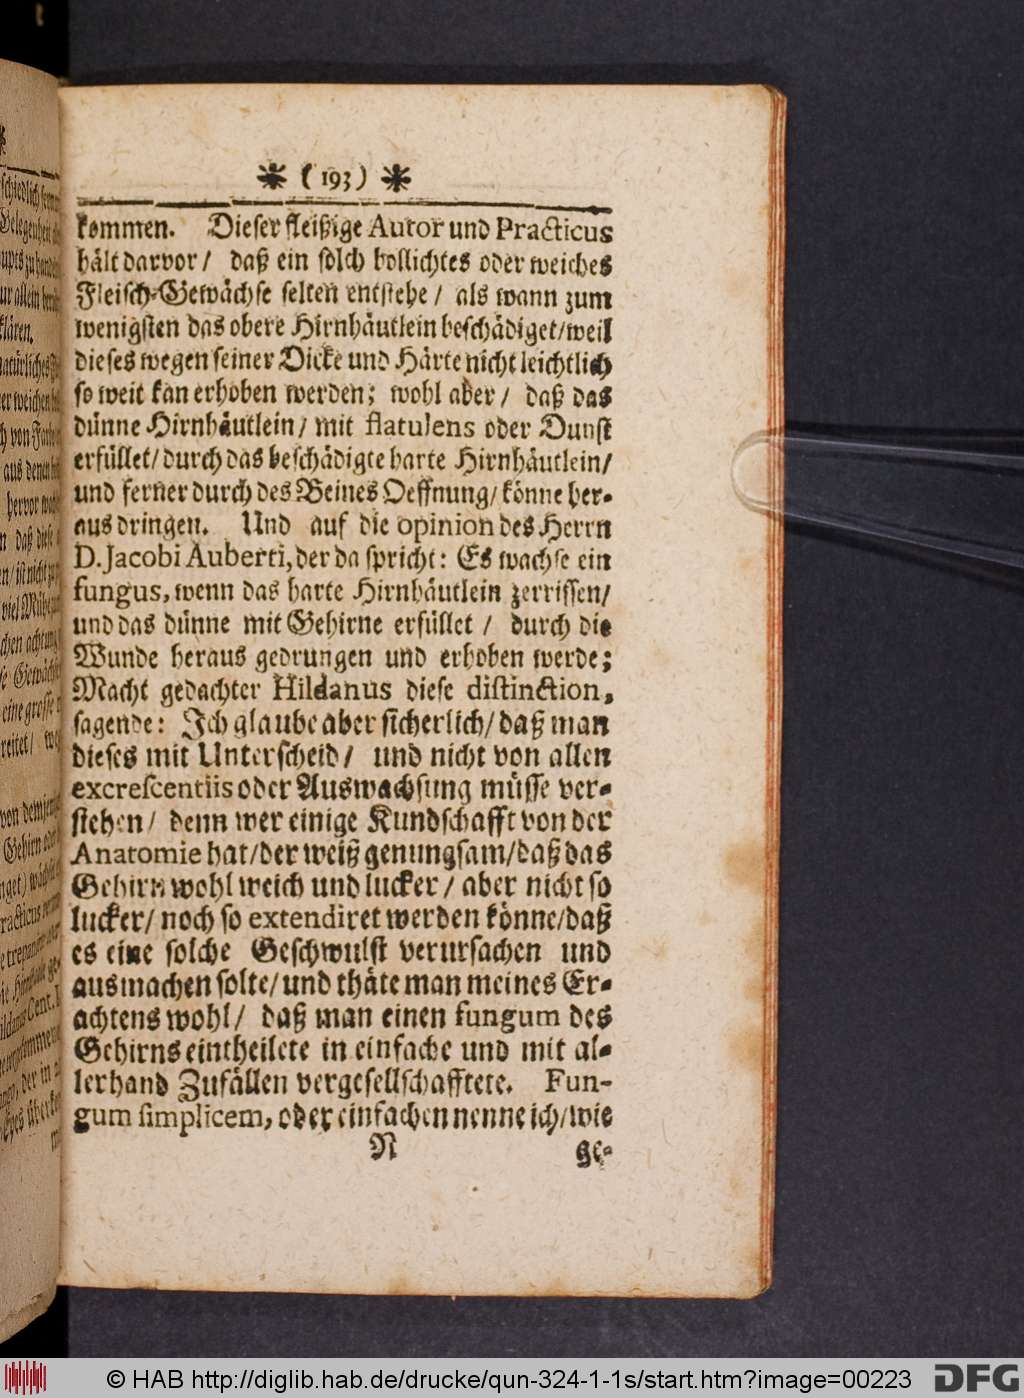 * (193) *
kommen. Dieser fleißige Autor und Practicus
hält darvor / daß ein solch bollichtes oder weiches
Fleisch-Gewächse selten entstehe / als wann zum
wenigsten das obere Hirnhäutlein beschädiget/weil
dieses wegen seiner Dicke und Härte nicht leichtlich
so weit kan erhoben werden; wohl aber / daß das
dünne Hirnhäutlein / mit flatulens oder Dunst
erfüllet / durch das beschädigte harte Hirnhäutlein /
und ferner durch des Beines Oeffnung / könne her-
aus dringen. Und auf die opinion des Herrn
D. Jacobi Auberti, der da spricht: Es wachse ein
fungus, wenn das harte Hirnhäutlein zerrissen /
und das dünne mit Gehirne erfüllet / durch die
Wunde heraus gedrungen und erhoben werde;
Macht gedachter Hildanus diese distinction,
sagende: Ich glaube aber sicherlich / daß man
dieses mit Unterscheid / und nicht von allen
excrescentiis oder Auswachsung müsse ver-
stehen / denn wer einige Kundschafft von der
Anatomie hat / der weiß genungsam / daß das
Gehirn wohl weich und lucker / aber nicht so
lucker / noch so extendiret werden könne / daß
es eine solche Geschwulst verursachen und
ausmachen solte / und thäte man meines Er-
achtens wohl / daß man einen fungum des
Gehirns eintheilete in einfache und mit al-
lerhand Zufällen vergesellschafftete. Fun-
gum simplicem, oder einfachen nenne ich / wie
N ge-
© HAB http://diglib.hab.de/drucke/qun-324-1-1s/start.htm?image=00223
DFG